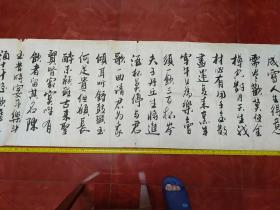 成雪人生得意
須盡歡莫使金
樽空對月天生我
材必有用千金散
盡還复來烹羊
宰牛且為樂會
須一飲三百杯岑
夫子丹丘生將進
酒杯莫停与君
歌一曲请君为我
傾耳聽鐘鼓饌玉
何足貴但願長
醉不願醒古來聖
賢皆寂寞惟有
飲者留其名陳
王昔時宴平樂斗
酒十千恣歡謔